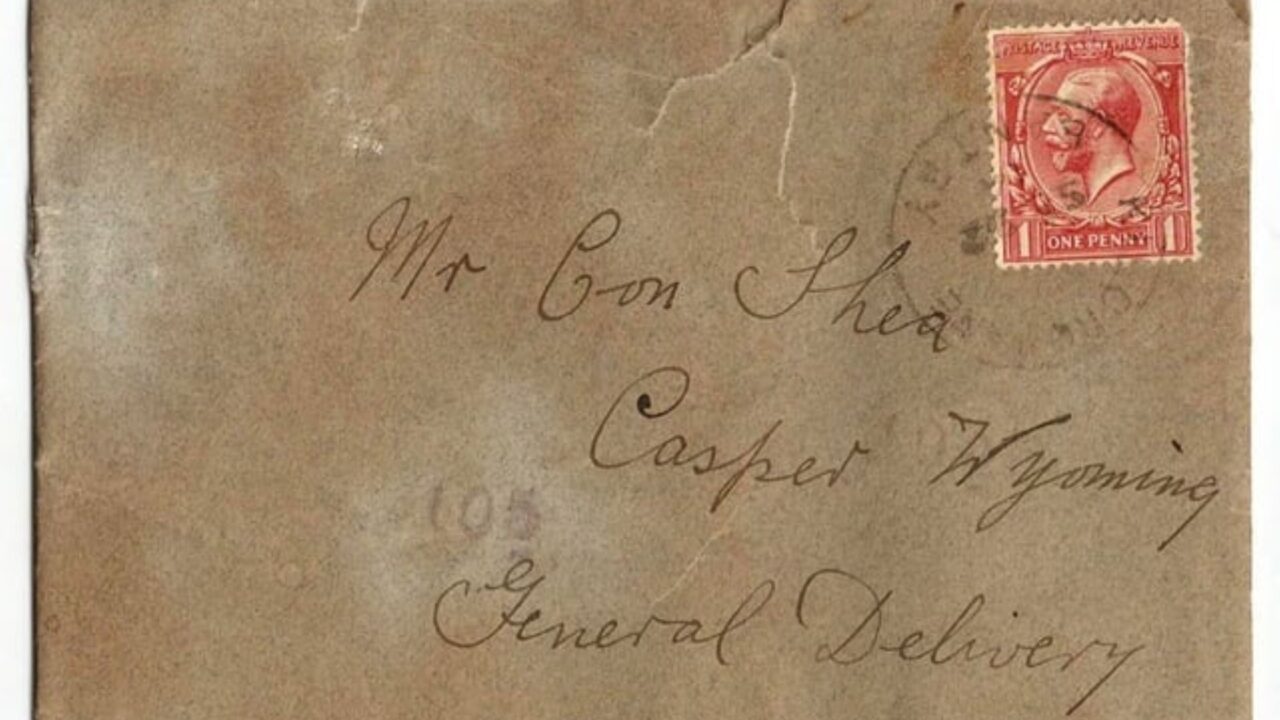 POSTAGE REVENUE
1 ONE PENNY 1
Mr Con Shea
Casper Wyoming
105
General Delivery